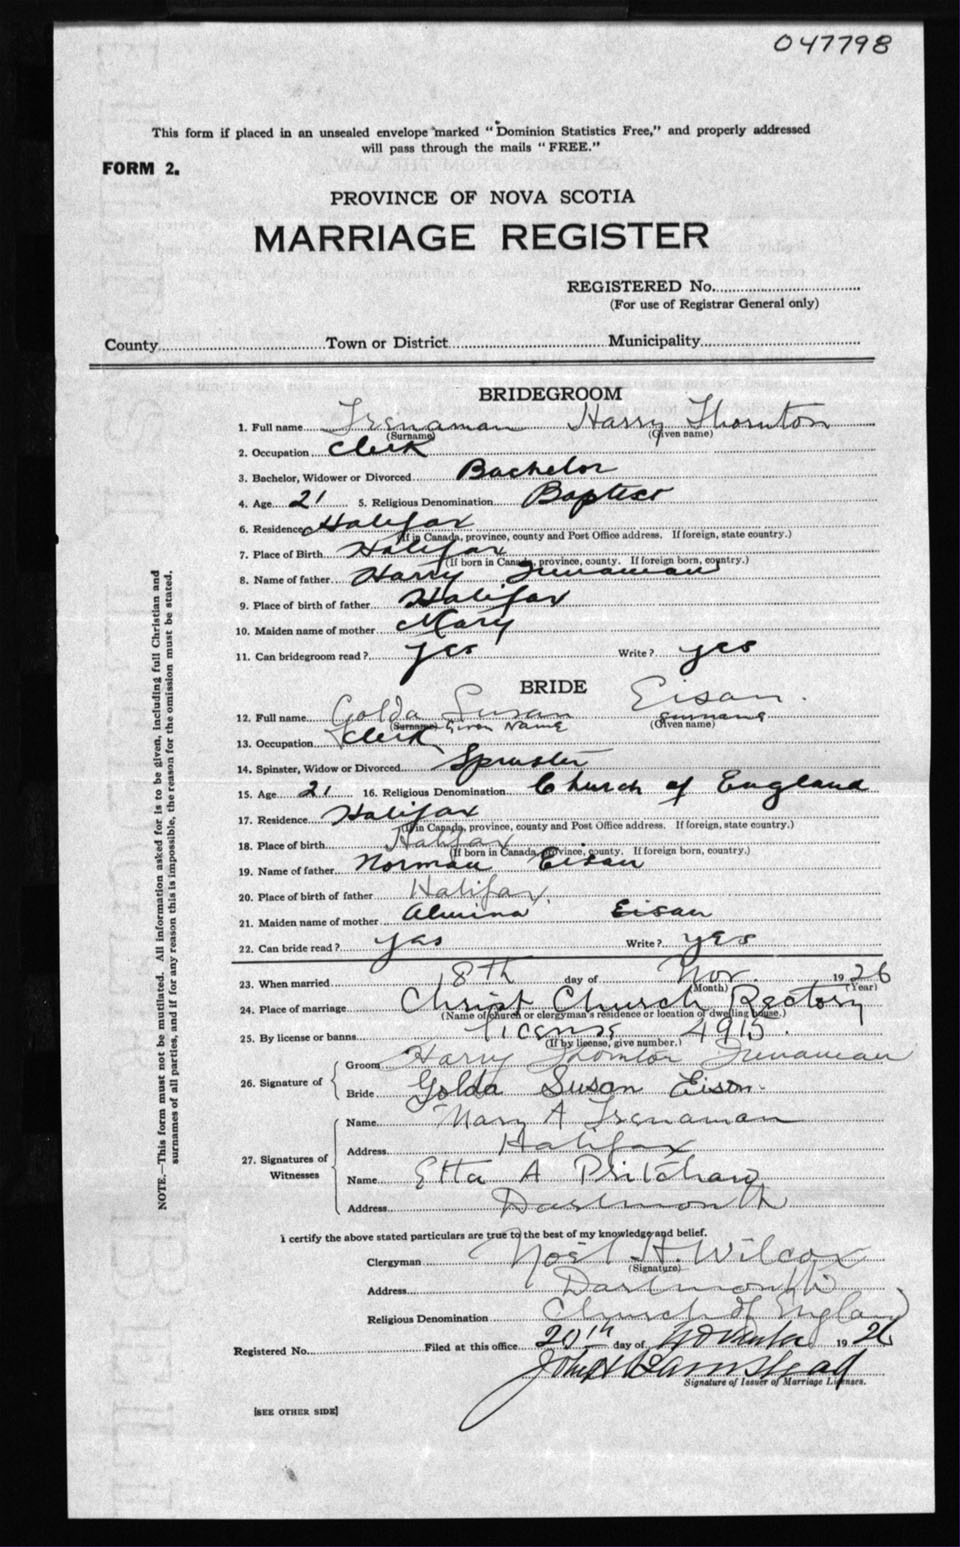 047798
This form if placed in an unsealed envelope marked "Dominion Statistics Free," and properly addressed
will pass through the mails "FREE."
FORM 2.
PROVINCE OF NOVA SCOTIA
MARRIAGE REGISTER
REGISTERED No.
(For use of Registrar General only)
County Town or District Municipality
BRIDEGROOM
1. Full name Trenaman Harry Thornton
(Surname) (Given name)
2. Occupation Clerk
3. Bachelor, Widower or Divorced Bachelor
4. Age 21 5. Religious Denomination Baptist
6. Residence Halifax
(If in Canada, province, county and Post Office address. If foreign, state country.)
7. Place of Birth Halifax
(If born in Canada, province, county. If foreign born, country.)
8. Name of father Harry Trenaman
9. Place of birth of father Halifax
10. Maiden name of mother Mary
11. Can bridegroom read? yes Write? yes
BRIDE
12. Full name Golda Susan Eisan.
(Surname) Given Name surname (Given name)
13. Occupation Clerk
14. Spinster, Widow or Divorced Spinster
15. Age 21 16. Religious Denomination Church of England
17. Residence Halifax
(If in Canada, province, county and Post Office address. If foreign, state country.)
18. Place of birth Halifax
(If born in Canada, province, county. If foreign born, country.)
19. Name of father Norman Eisan
20. Place of birth of father Halifax.
21. Maiden name of mother Almina Eisan
22. Can bride read? yas Write? yes
23. When married 18th day of Nov. 1926
(Month) (Year)
24. Place of marriage Christ Church Rectory
(Name of church or clergyman's residence or location of dwelling house.)
25. By license or banns license 4915.
(If by license, give number.)
26. Signature of
Groom Harry Thornton Trenaman
Bride Golda Susan Eison.
27. Signatures of Witnesses
Name Mary A Trenaman
Address Halifax
Name Etta A Pritchard
Address Dartmouth
I certify the above stated particulars are true to the best of my knowledge and belief.
Clergyman Noel H. Wilcox
(Signature)
Address Dartmouth
Religious Denomination Church of England
Registered No. Filed at this office 20th day of November 1926
Signature of Issuer of Marriage Licenses.
[SEE OTHER SIDE]
NOTE.—This form must not be mutilated. All information asked for is to be given, including full Christian and
surnames of all parties, and if for any reason this is impossible, the reason for the omission must be stated.